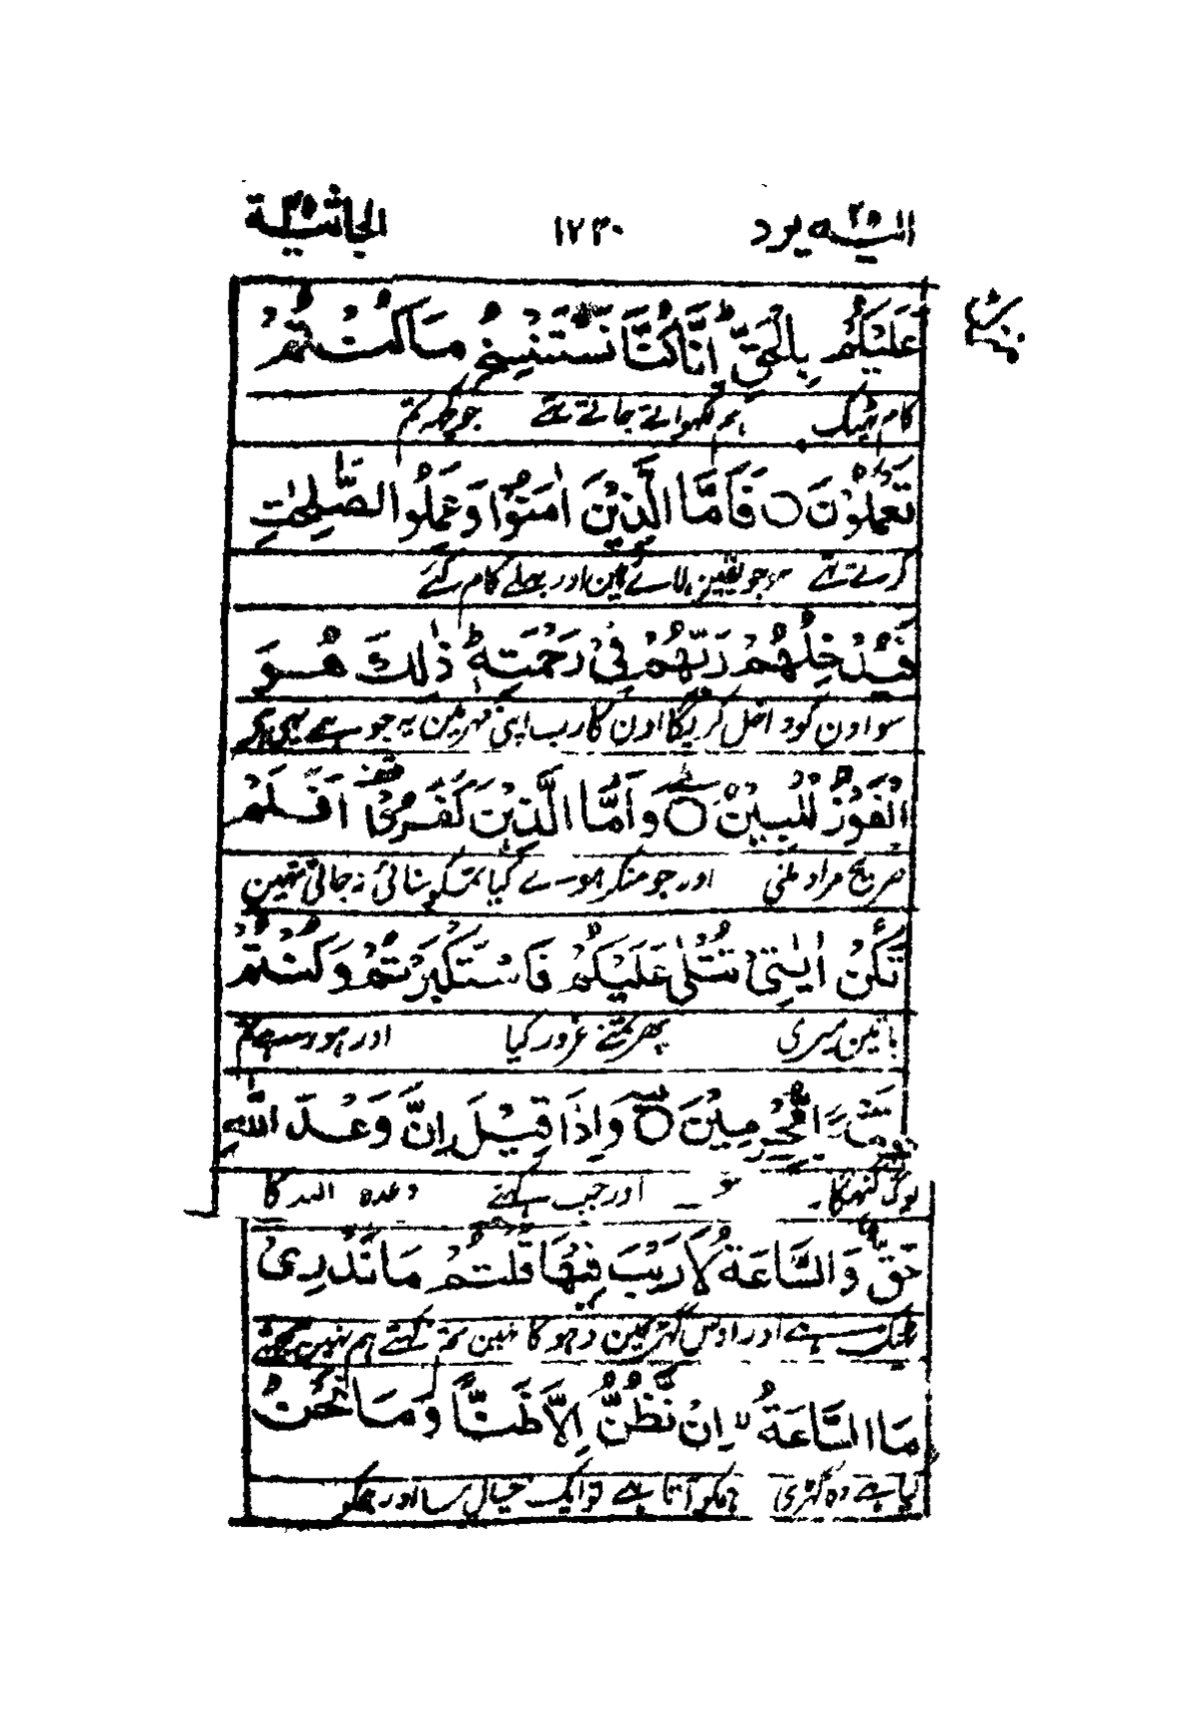 اليه يرد ٢٥ ١٢٣٠ الجاثية ٤٥
عَلَيْكُمْ بِالْحَقِّ ؕ اِنَّا كُنَّا نَسْتَنْسِخُ مَا كُنْتُمْ
کام ٹھیک ہم لکھواتے جاتے تھے جو کچھ تم
تَعْمَلُوْنَ ○ فَاَمَّا الَّذِيْنَ اٰمَنُوْا وَعَمِلُوا الصّٰلِحٰتِ
کرتے تھے سو جو یقین لائے ہین اور بھلے کام کئے
فَيُدْخِلُهُمْ رَبُّهُمْ فِيْ رَحْمَتِهٖ ؕ ذٰلِكَ هُوَ
سو اون کو داخل کریگا اون کا رب اپنی مہر مین یہ جو ہے یہی ہے
الْفَوْزُ الْمُبِيْنُ ○ وَاَمَّا الَّذِيْنَ كَفَرُوْا اَفَلَمْ
صریح مراد ملنی اور جو منکر ہوے کیا تمکو سنائی نہ جاتی تھین
تَكُنْ اٰيٰتِيْ تُتْلٰى عَلَيْكُمْ فَاسْتَكْبَرْتُمْ وَكُنْتُمْ
باتین میری پھر تمنے غرور کیا اور ہو رہے تم
قَوْمًا مُّجْرِمِيْنَ ○ وَاِذَا قِيْلَ اِنَّ وَعْدَ اللّٰهِ
لوگ گنہگار اور جب کہئے وعدہ اللہ کا
حَقٌّ وَّالسَّاعَةُ لَا رَيْبَ فِيْهَا قُلْتُمْ مَا نَدْرِيْ
ٹھیک ہے اور اوس گھڑی مین دھوکا نہین تم کہتے ہم نہین سمجھتے
مَا السَّاعَةُ ۙ اِنْ نَّظُنُّ اِلَّا ظَنًّا وَّمَا نَحْنُ
کیا ہے وہ گھڑی ہمکو آتا ہے تو ایک خیال سا اور ہمکو